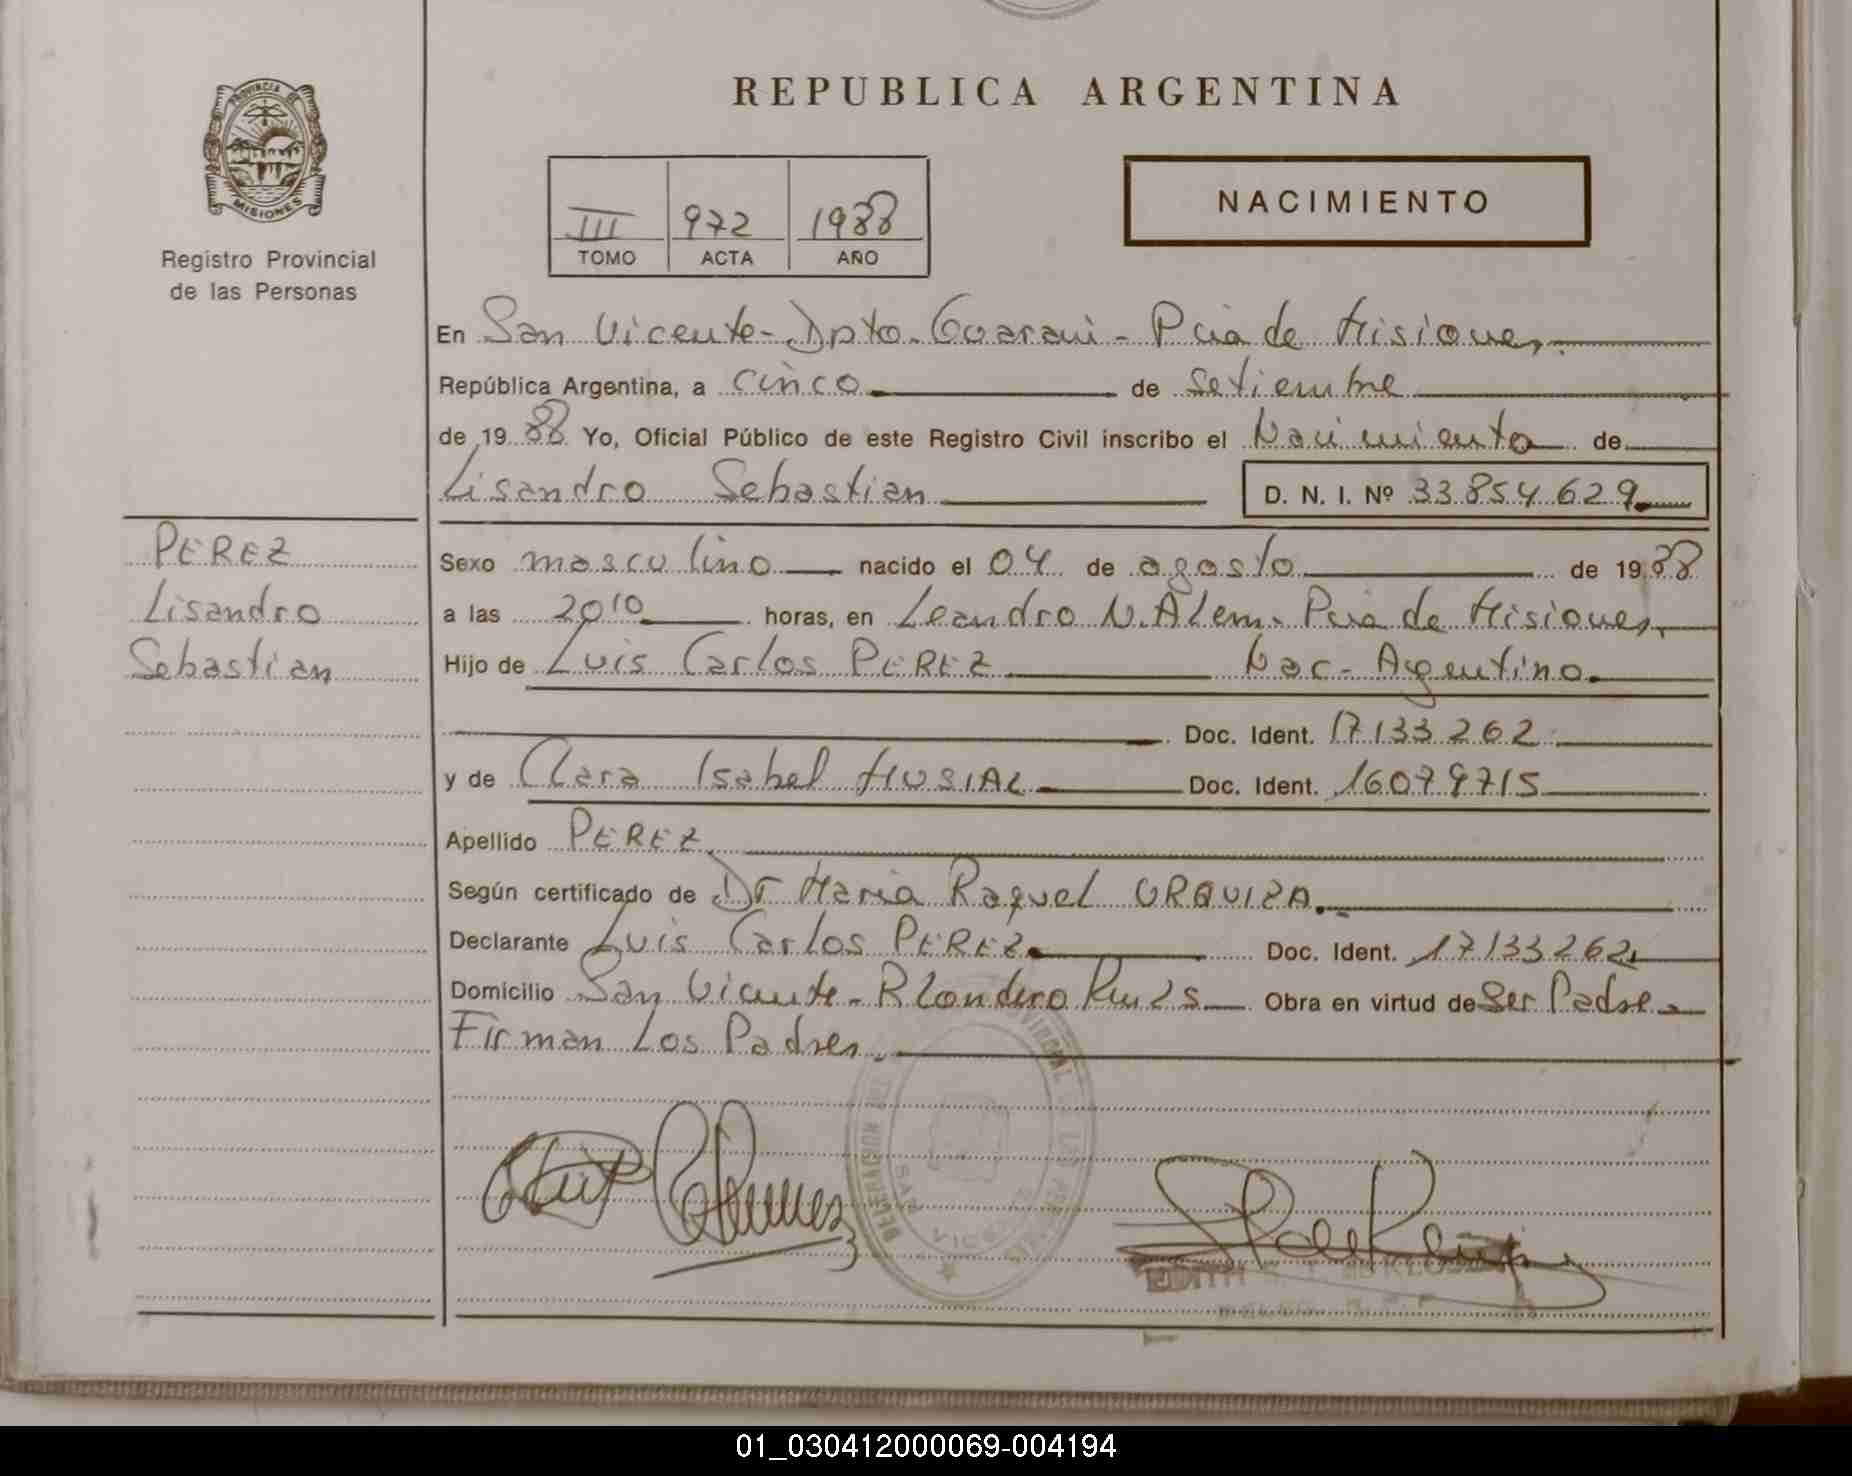 PROVINCIA DE
MISIONES
Registro Provincial
de las Personas
REPUBLICA ARGENTINA
III 972 1988
TOMO ACTA AÑO
NACIMIENTO
En San Vicente - Dpto. Guarani - Pcia de Misiones.
República Argentina, a cinco de Setiembre
de 19 88 Yo, Oficial Público de este Registro Civil inscribo el Nacimiento de
Lisandro Sebastian D. N. I. Nº 33.854.629
PEREZ
Lisandro
Sebastian
Sexo masculino nacido el 04 de agosto de 19 88
a las 20 10 horas, en Leandro N. Alem - Pcia de Misiones.
Hijo de Luis Carlos PEREZ Nac - Argentino.
Doc. Ident. 17.133.262
y de Clara Isabel MUSIAL Doc. Ident. 16079715
Apellido PEREZ
Según certificado de Dr Maria Raquel URQUIZA.
Declarante Luis Carlos PEREZ Doc. Ident. 17133262
Domicilio San Vicente - Obra en virtud de Ser Padre
Firman Los Padres.
SAN VICENTE
EDITH
01_030412000069-004194